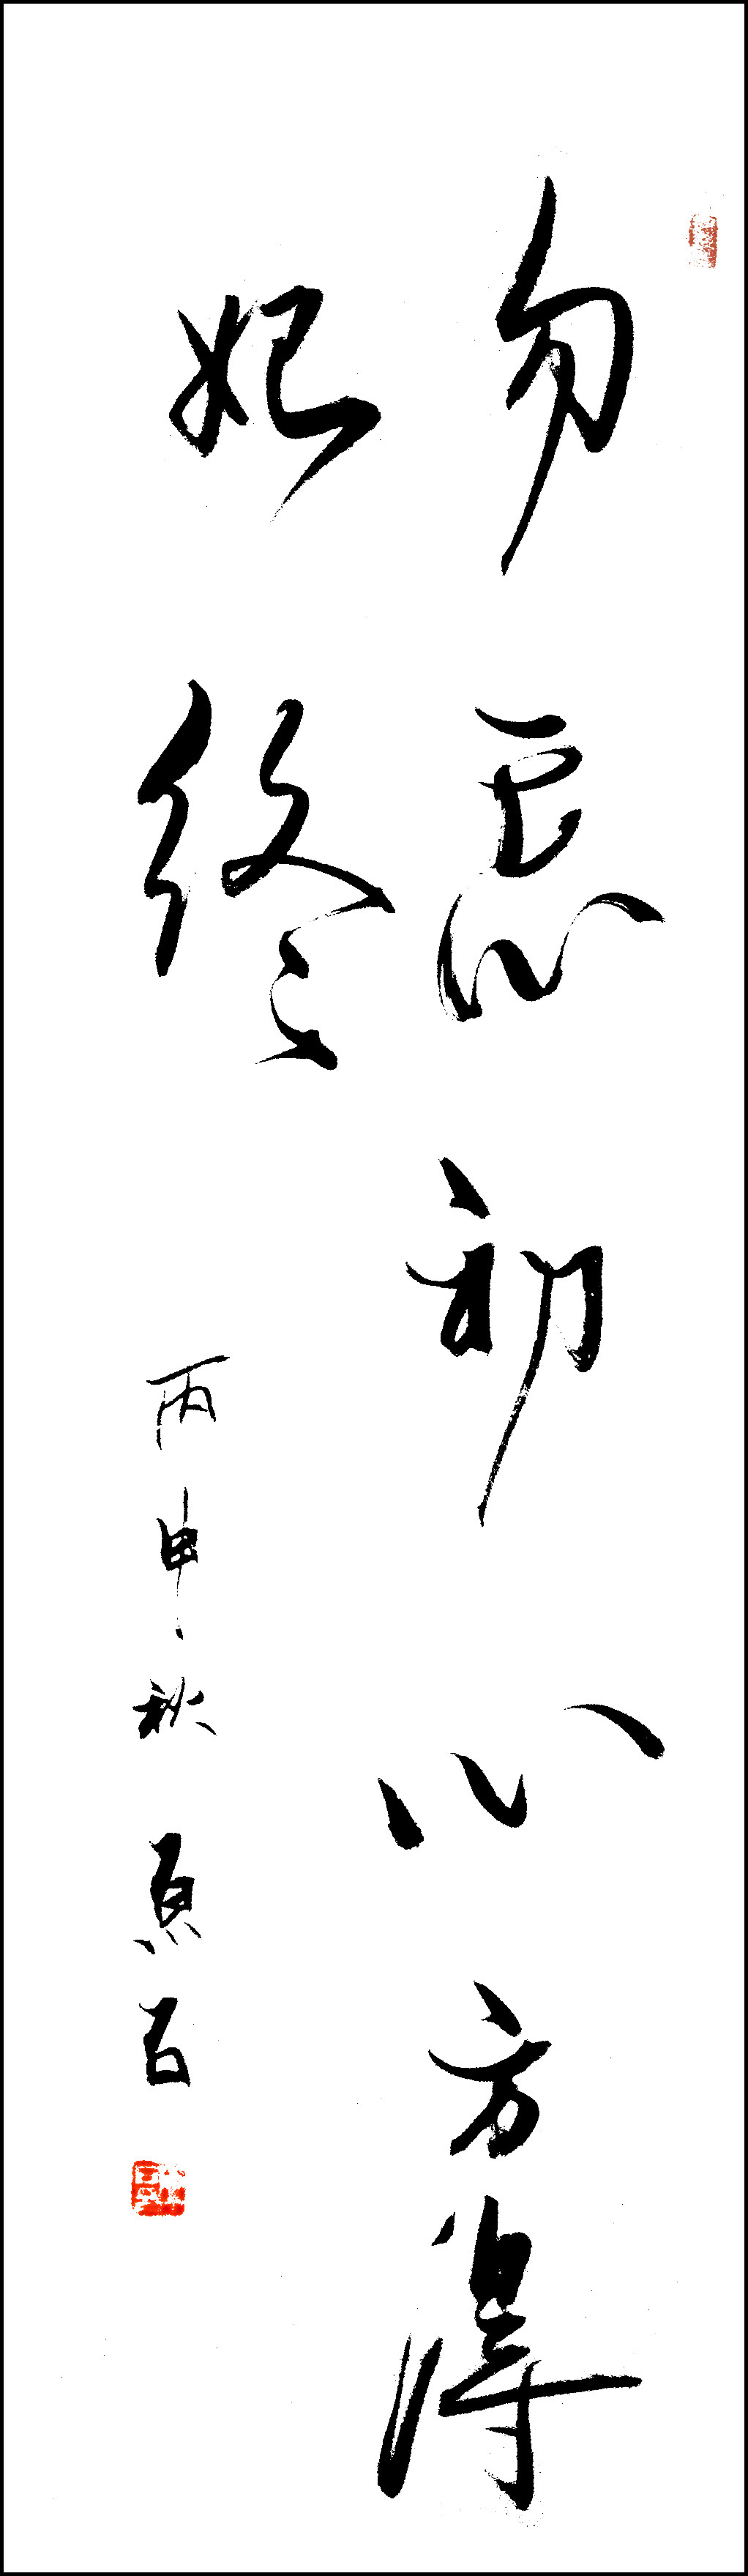 勿忘初心方得
始终
丙申秋 原石